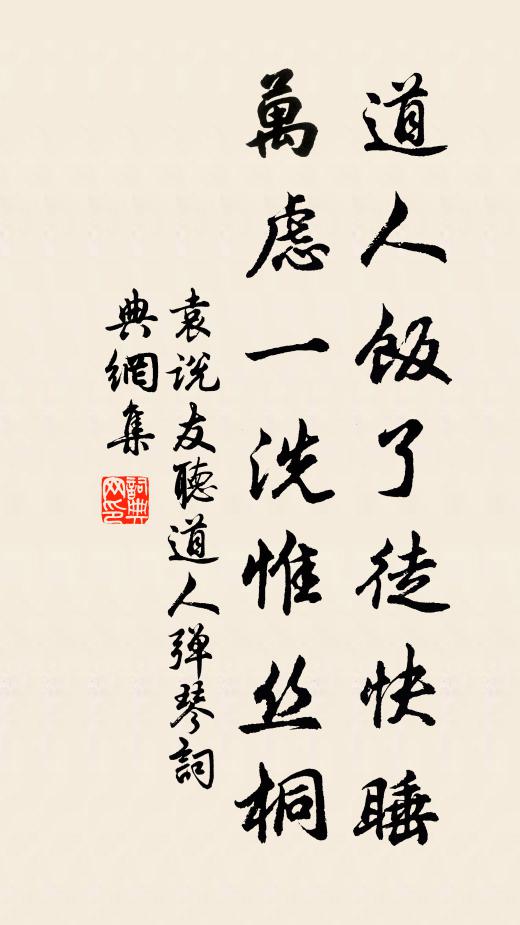 道人飯了徒快睡
萬慮一洗惟丝桐
袁说友聽道人弹琴詞
典網集
詞典网印